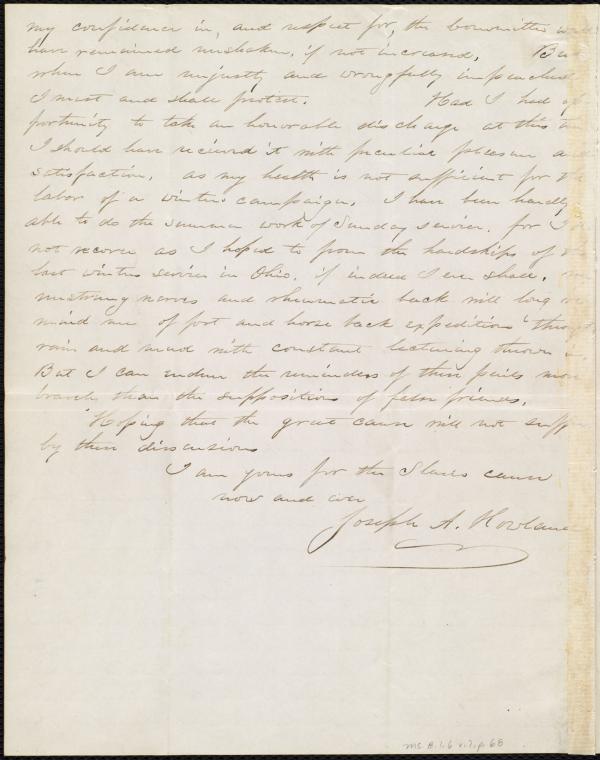 my confidence in, and respect for, the committee
have remained unshaken, if not increased. But
when I am unjustly and wrongfully impeached
I must and shall protest. Had I had op
portunity to take an honorable discharge at this
I should have received it with peculiar pleasure and
satisfaction, as my health is not sufficient for the
labor of a winter campaign. I have been hardly
able to do the summer work of Sunday service, for I
not recover as I hoped to from the hardships of
last winters service in Ohio, if indeed I ever shall.
unstrung nerves and rheumatic back will long re
mind me of foot and horse back expeditions through
rain and mud with constant lecturing thrown
But I can endure the reminders of these perils more
bravely than the suppositions of false friends.
Hoping that the great cause will not suffer
by these dissensions
I am yours for the Slaves cause
now and ever
Joseph A. Howland
Ms. B.1.6 v.7, p. 68